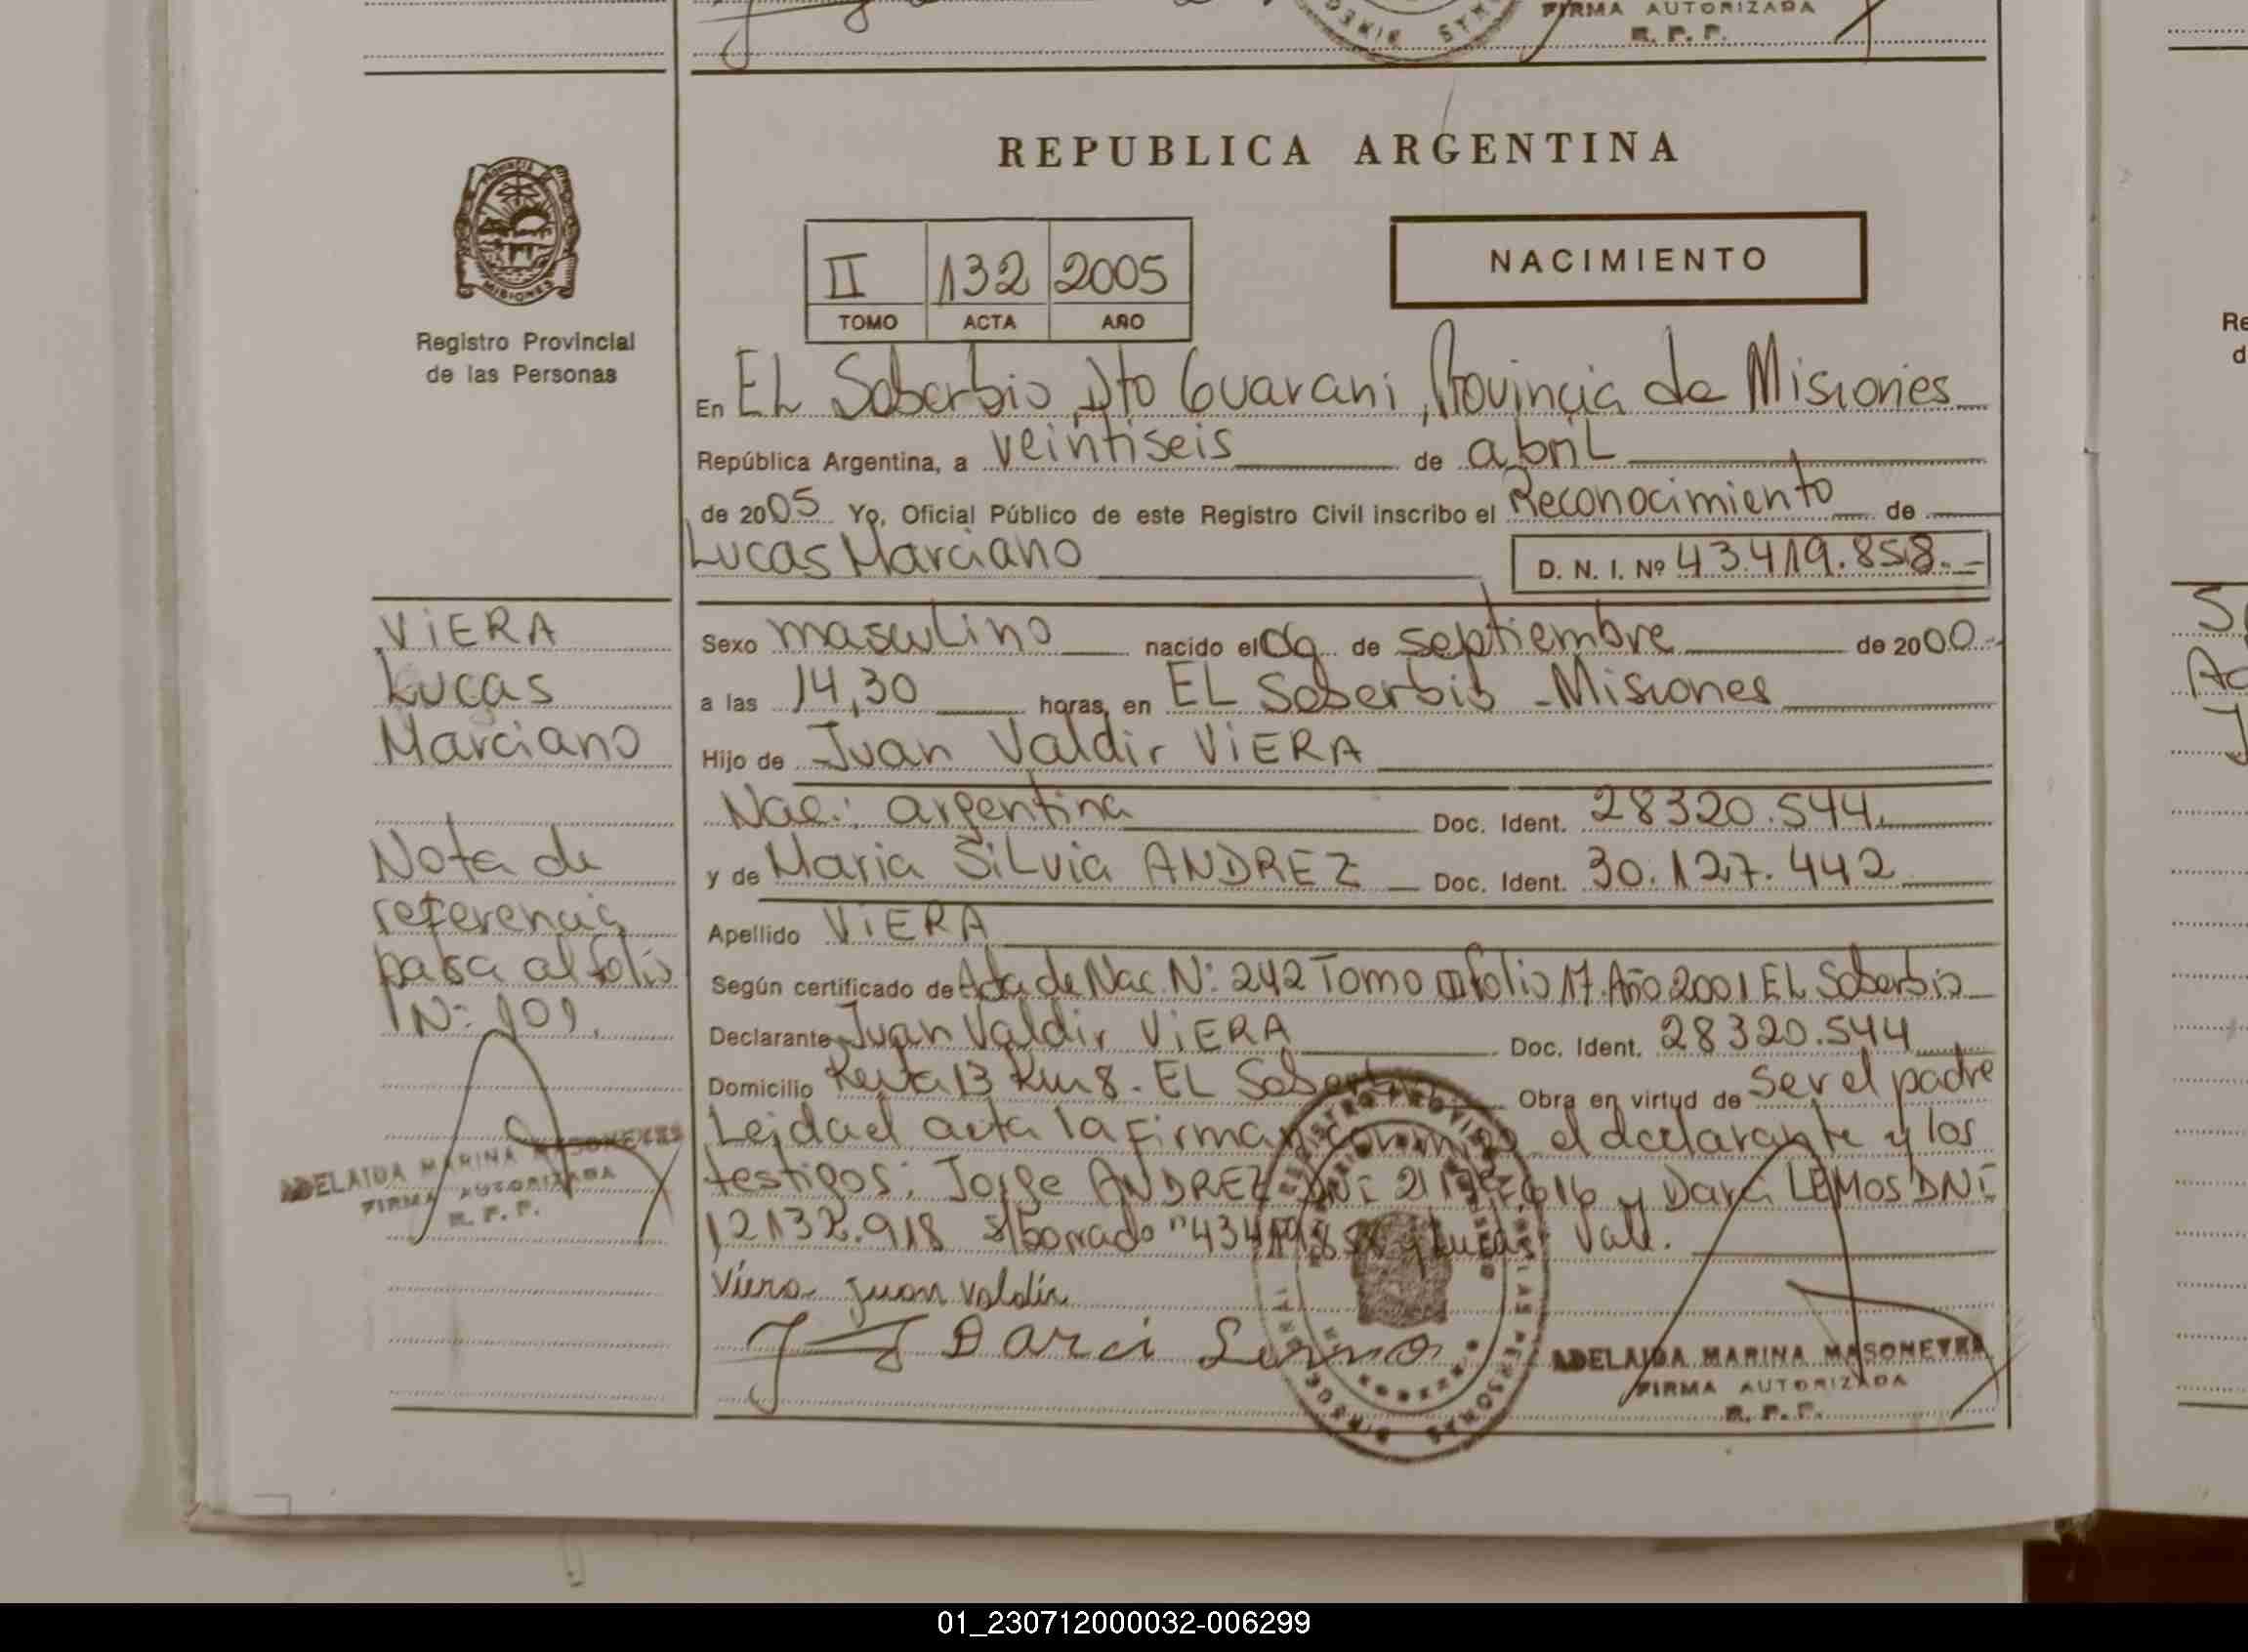 FIRMA AUTORIZADA
R. P. P.
REPUBLICA ARGENTINA
PROVINCIA DE
MISIONES
Registro Provincial
de las Personas
NACIMIENTO
II 132 2005
TOMO ACTA AÑO
En EL Soberbio, Dto Guarani, Provincia de Misiones
República Argentina, a veintiseis de abril
de 2005 Yo, Oficial Público de este Registro Civil inscribo el Reconocimiento de
Lucas Marciano D. N. I. Nº 43.419.858.-
VIERA
Lucas
Marciano
Nota de
referencia
pasa al folio
Nº 101.
ADELAIDA MARINA MASONEYRA
FIRMA AUTORIZADA
R. P. P.
Sexo masculino nacido el 09 de septiembre de 2000.-
a las 14,30 horas, en EL Soberbio - Misiones
Hijo de Juan Valdir VIERA
Nac.: argentina Doc. Ident. 28320.544.
y de Maria Silvia ANDREZ Doc. Ident. 30.127.442
Apellido VIERA
Según certificado de Acta de Nac. Nº 242 Tomo III folio 17. Año 2001 EL Soberbio
Declarante Juan Valdir VIERA Doc. Ident. 28320.544
Domicilio Ruta 13 Km 8 - EL Soberbio Obra en virtud de ser el padre
Leida el acta la firman conmigo el declarante y los
testigos: Jorge ANDREZ DNI y Darci LEMOS DNI
12132.918 s/borrado "43419858 y Lucas" Vale.
Viera Juan Valdir
Darci Lemos
ADELAIDA MARINA MASONEYRA
FIRMA AUTORIZADA
R. P. P.
01_230712000032-006299